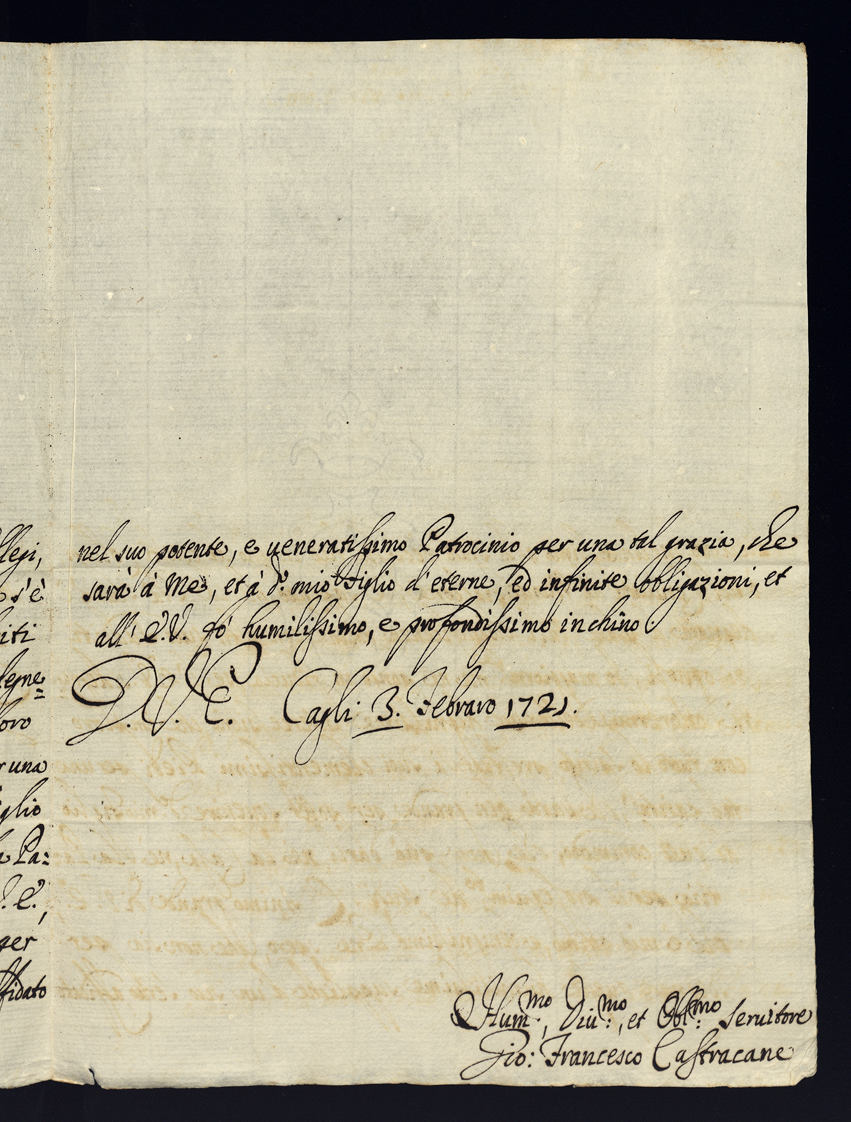 llegi,
s'è
iti
legne=
loro
r una
figlio
a Pa:
V. E.,
per
ffidato
nel suo potente, e ueneratissimo Patrocinio per una tal grazia, che
sarà à Me, et à d.º mio Figlio d'eterne, ed infinite obbligazioni, et
all' E.V. fò humilissimo, e profondissimo inchino.
D. V. E. Cagli 3. Febraro 1721.
Hum.mo, Diu.mo, et Obl.mo Seruitore
Gio: Francesco Castracane